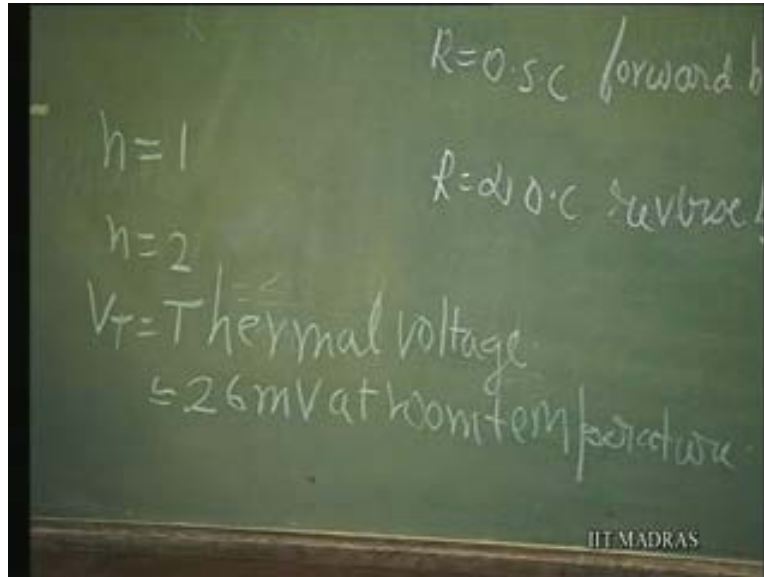 R=0 S.C forward b
n=1
R=∞ O.C reverse b
n=2
V_T=Thermal voltage.
≃26mV at room temperature.
IIT MADRAS